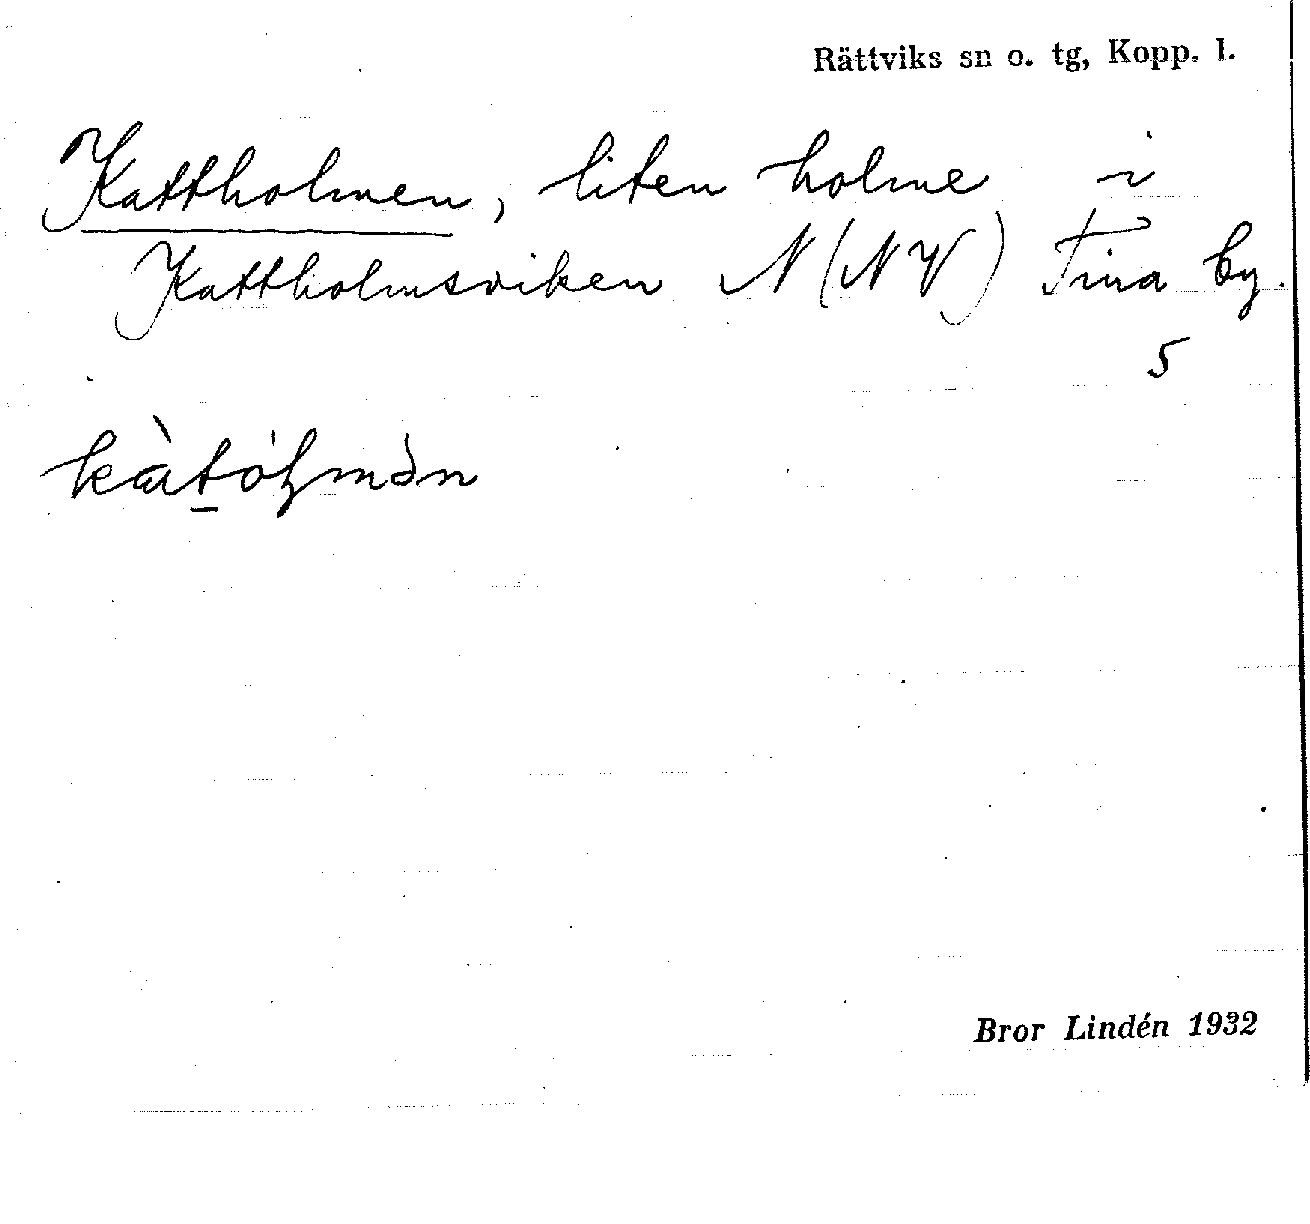 Rättviks sn o. tg, Kopp. l.
Kattholmen, liten holme i
Kattholmsviken N (NV) Fina by.
5
Bror Lindén 1932